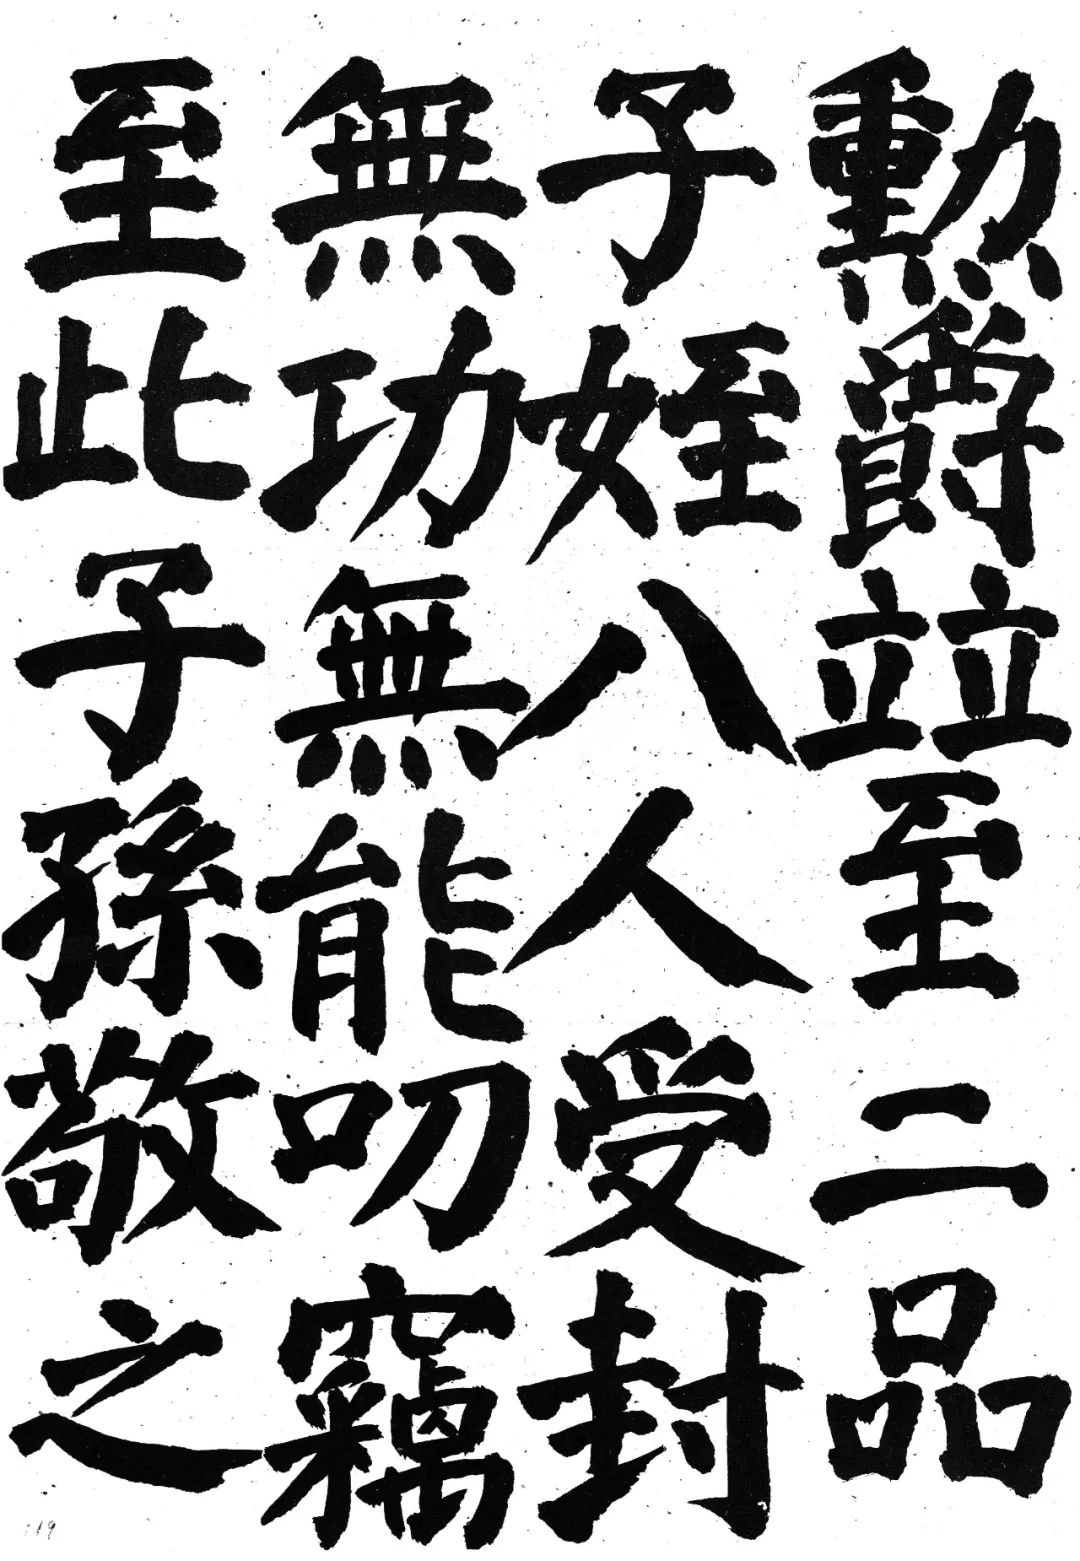 勲爵竝至二品
子姪八人受封
無功無能叨竊
至此子孫敬之
119